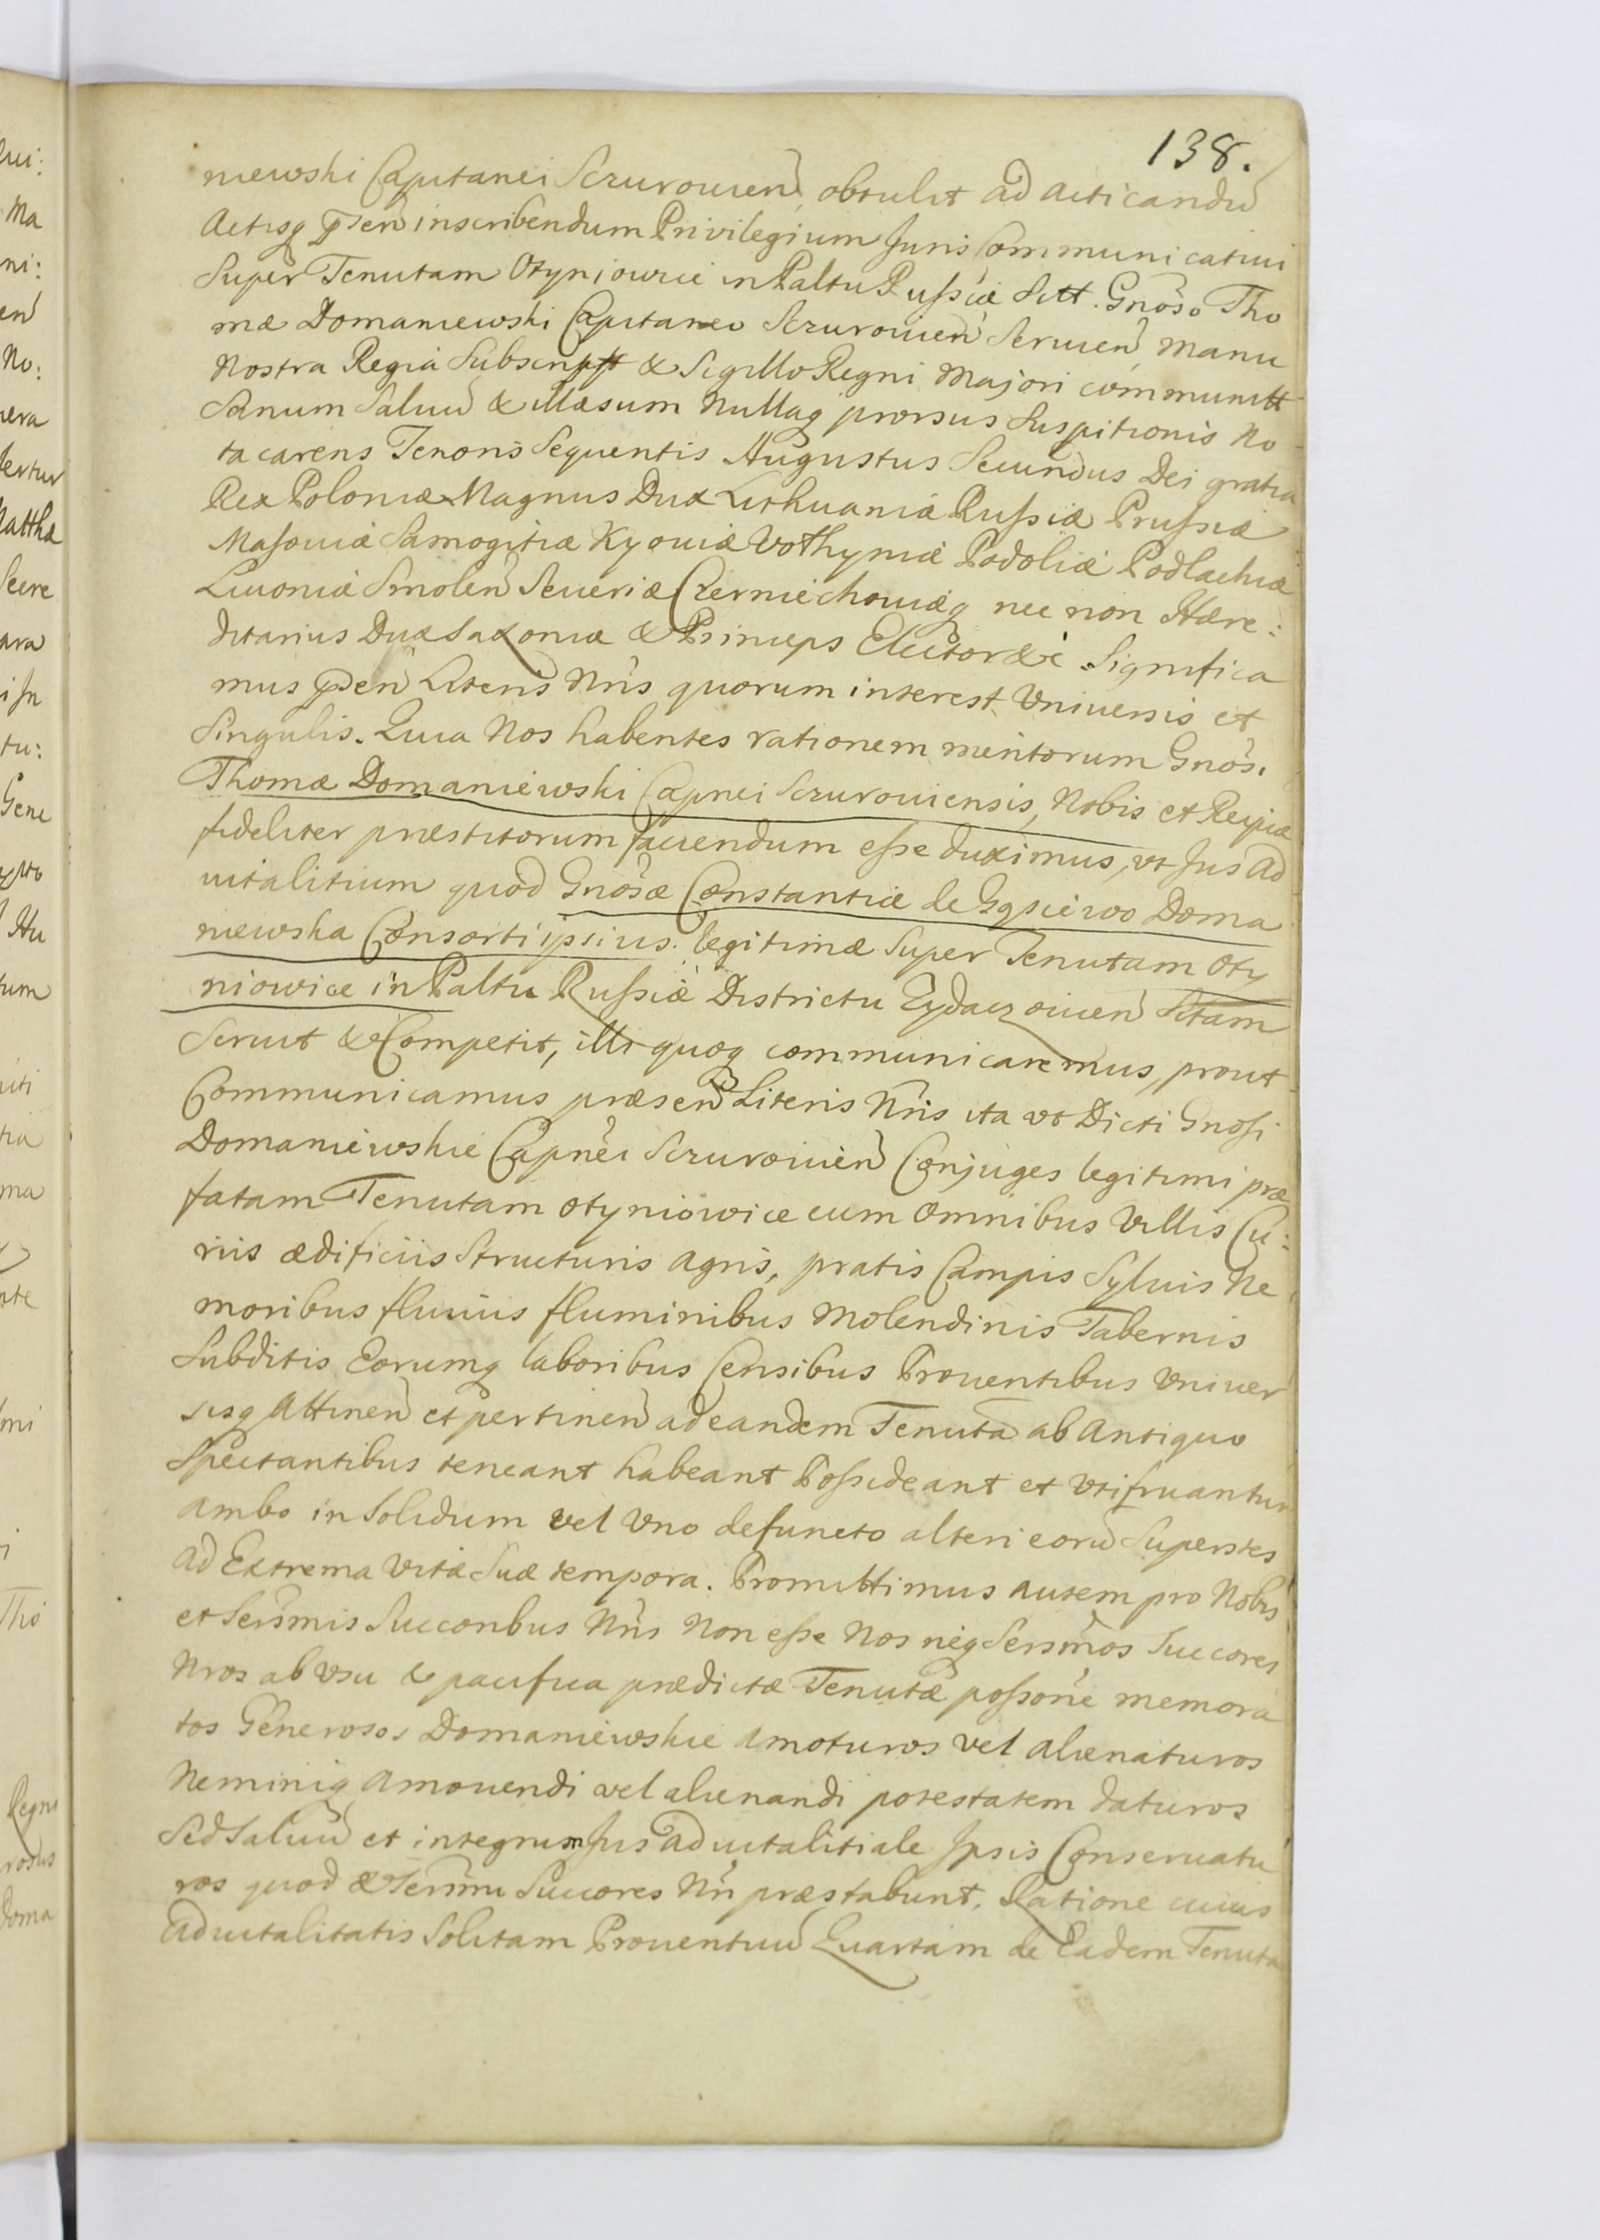 138.
niewski Capitanei Szurowien, obtulit ad acticandũ
Actisq pn̄ien inscribendum Privilegium Juris Communicativi
Super Tenutam Otyniowice in Paltu Russiæ Sitt. Gnõso Tho
mæ Domaniewski Capitaneo Szurowien̄ Servien̄ manu
Nostra Regia Subscriptt & Sigillo Regni Majori communitt
Sanum Salvũ & illæsum Nullaq prorsus Suspitionis No
ta carens Tenoris Sequentis Augustus Secundus Dei gratia
Rex Poloniæ Magnus Dux Lithuaniæ Russiæ Prussiæ
Masoviæ Samogitiæ Kyoviæ Volhyniæ Podoliæ Podlachiæ
Livoniæ Smolen̄ Severiæ Czerniechoviæq nec non Hære:
ditarius Dux Saxoniæ & Princeps Elector &c Significa
mus pn̄ien̄ Literis Nris quorum interest Universis et
Singulis. Quia Nos habentes rationem meritorum Gnosi
Thomæ Domaniewski Capnei Szurowiensis, Nobis et Reipcæ
fideliter præstitorum faciendum esse duximus, vt Jus ad
vitalitium quod Gnõsæ Constantiæ de Doma
niewska Consorti ipsius legitimæ Super Tenutam Oty
niowice in Paltu Russiæ Districtu Zydaczowien̄ Sitam
Servit & Competit, illi quoq communicaremus, prout
Communicamus præsen̄ Literis Nris ita vt Dicti Gnosi
Domaniewskie Capnei Szurowien̄ Conjuges legitimi præ
fatam Tenutam Otyniowice cum Omnibus Villis Cu:
riis ædificiis Structuris agris, pratis Campis Sylvis Ne
moribus fluviis fluminibus Molendinis Tabernis
Subditis Eorumq laboribus Censibus Proventibus Univer
sisq Attinen̄ et pertinen̄ ad eandem Tenutã ab Antiquo
Spectantibus teneant habeant Possideant et Vtifruantur
ambo in Solidum vel Vno defuncto alteri eorũ Superstes
ad Extrema Vitæ Suæ tempora. Promittimus autem pro Nobis
et Sersmis Succoribus Nris Non esse Nos neq Sersmos Succores
Nros ab Vsu & pacifica prædictæ Tenutæ possone memora
tos Generosos Domaniewskie Amoturos vel alienaturos
Neminiq Amovendi vel alienandi potestatem daturos
Sed Salvũ et integrum Jus advitalitiale Ipsis Conservatu
ros quod & Sersmi Succores Nri præstabunt. Ratione cuius
Advitalitatis Solitam Proventuũ Quartam de Eadem Tenuta